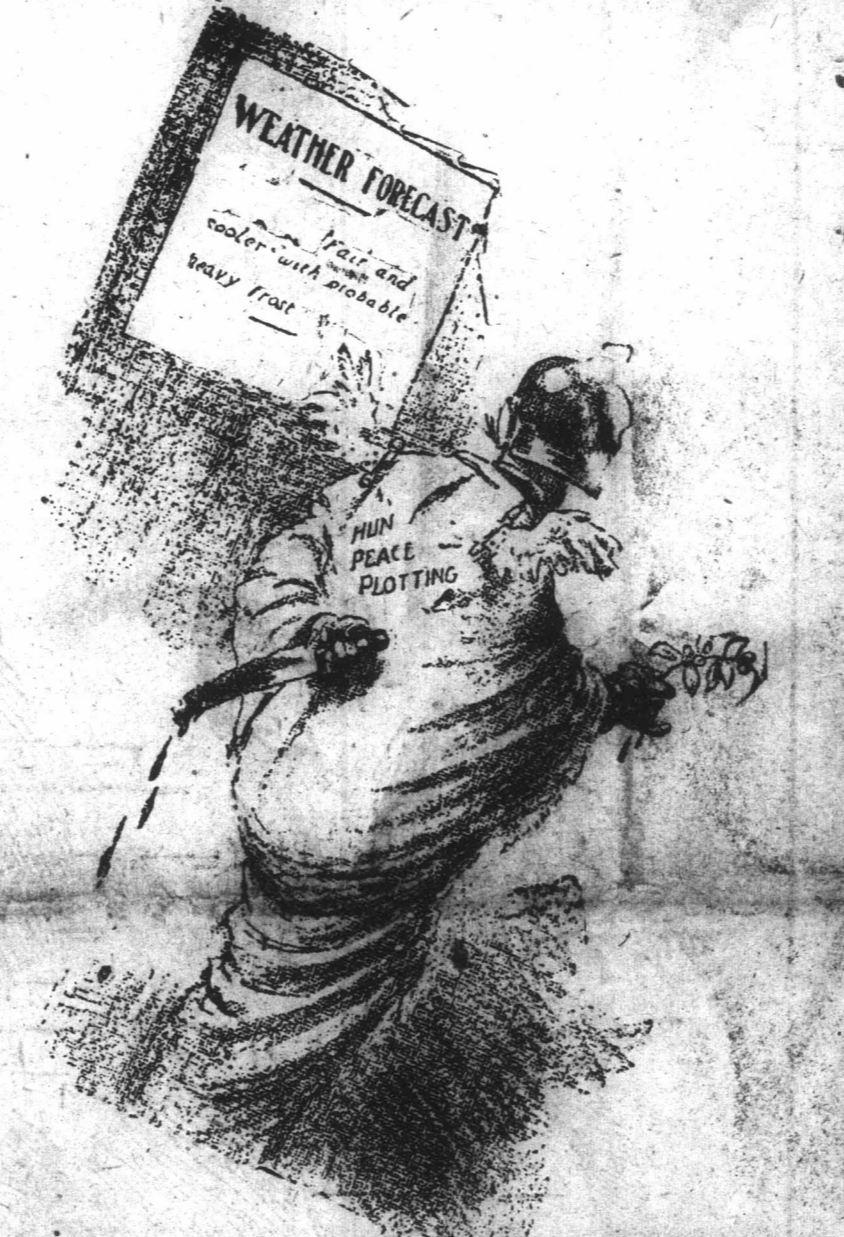 WEATHER FORECAST
Fair and
cooler with probable
heavy frost
HUN
PEACE
PLOTTING